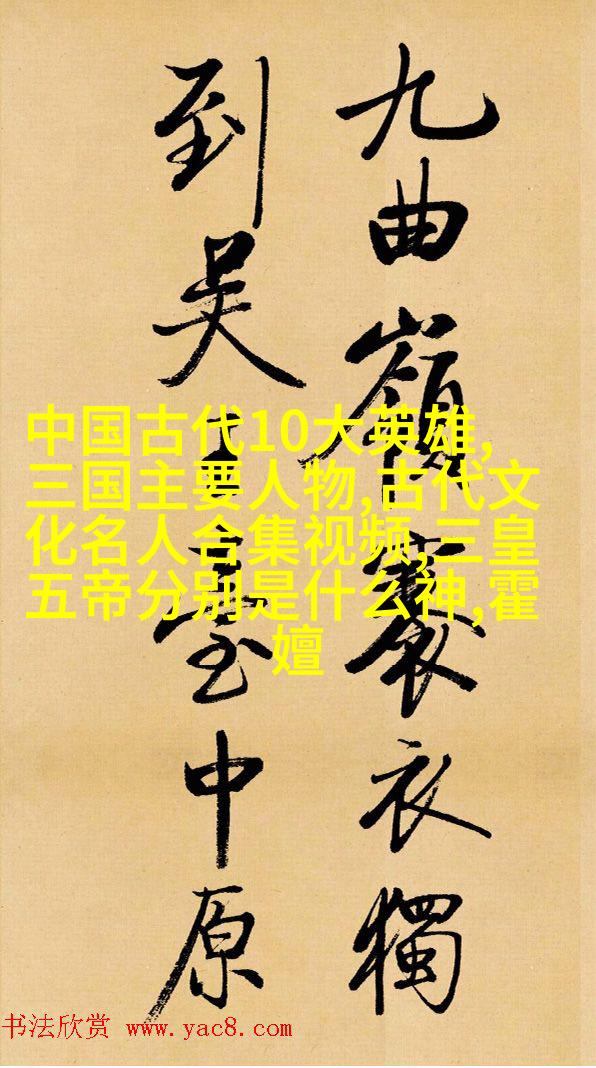 九曲嶺褰衣獨
到吴臺中原
中国古代10大英雄,
三国主要人物,古代文
化名人合集视频,三皇
五帝分别是什么神,霍
嬗
书法欣赏 www.yac8.com